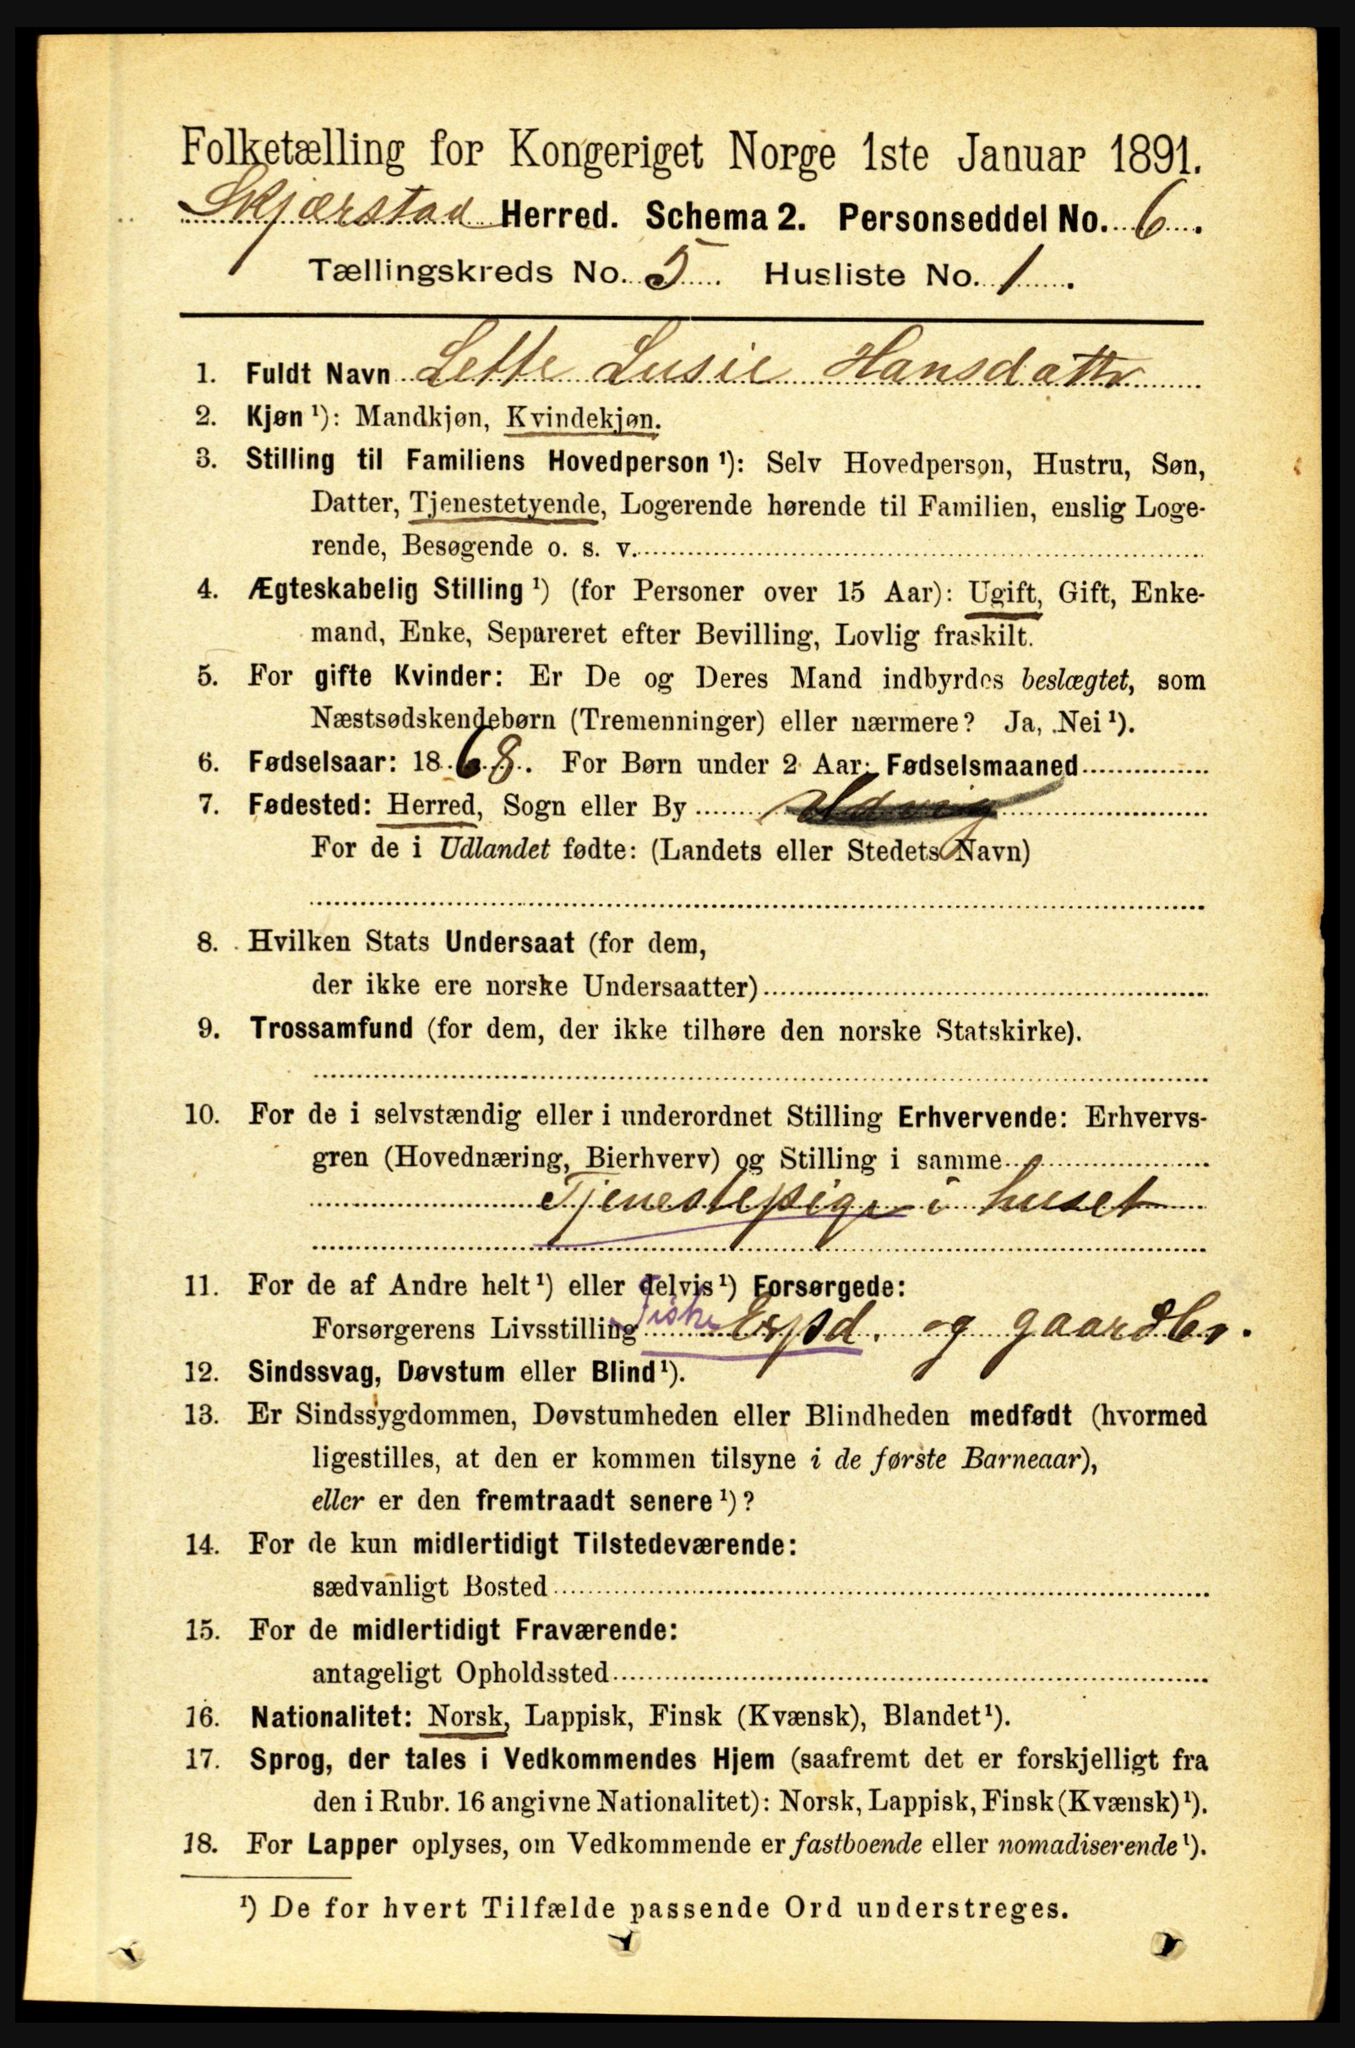 Folketælling for Kongeriget Norge 1ste Januar 1891.
Skjærstad Herred. Schema 2. Personseddel No. 6.
Tællingskreds No. 5. Husliste No. 1.
1. Fuldt Navn Lette Lusie Hansdattr
2. Kjøn ¹): Mandkjøn, Kvindekjøn.
3. Stilling til Familiens Hovedperson ¹): Selv Hovedperson, Hustru, Søn,
Datter, Tjenestetyende, Logerende hørende til Familien, enslig Loge-
rende, Besøgende o. s. v.
4. Ægteskabelig Stilling ¹) (for Personer over 15 Aar): Ugift, Gift, Enke-
mand, Enke, Separeret efter Bevilling, Lovlig fraskilt.
5. For gifte Kvinder: Er De og Deres Mand indbyrdes beslægtet, som
Næstsødskendebørn (Tremenninger) eller nærmere? Ja, Nei ¹).
6. Fødselsaar: 1868. For Børn under 2 Aar: Fødselsmaaned
7. Fødested: Herred, Sogn eller By
For de i Udlandet fødte: (Landets eller Stedets Navn)
8. Hvilken Stats Undersaat (for dem,
der ikke ere norske Undersaatter)
9. Trossamfund (for dem, der ikke tilhøre den norske Statskirke).
10. For de i selvstændig eller i underordnet Stilling Erhvervende: Erhvervs-
gren (Hovednæring, Bierhverv) og Stilling i samme
Tjenestepige i huset
11. For de af Andre helt ¹) eller delvis ¹) Forsørgede:
Forsørgerens Livsstilling Fiske Expd. og gaardbr.
12. Sindssvag, Døvstum eller Blind ¹).
13. Er Sindssygdommen, Døvstumheden eller Blindheden medfødt (hvormed
ligestilles, at den er kommen tilsyne i de første Barneaar),
eller er den fremtraadt senere ¹)?
14. For de kun midlertidigt Tilstedeværende:
sædvanligt Bosted
15. For de midlertidigt Fraværende:
antageligt Opholdssted
16. Nationalitet: Norsk, Lappisk, Finsk (Kvænsk), Blandet ¹).
17. Sprog, der tales i Vedkommendes Hjem (saafremt det er forskjelligt fra
den i Rubr. 16 angivne Nationalitet): Norsk, Lappisk, Finsk (Kvænsk) ¹).
18. For Lapper oplyses, om Vedkommende er fastboende eller nomadiserende ¹).
¹) De for hvert Tilfælde passende Ord understreges.